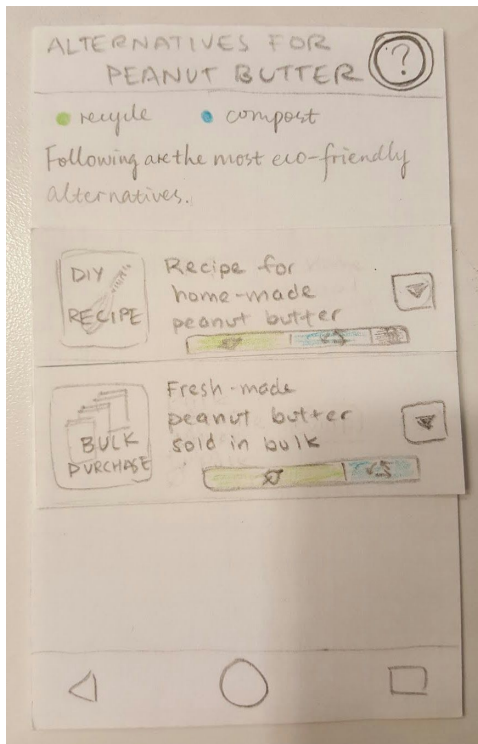 ALTERNATIVES FOR
PEANUT BUTTER
?
recycle
compost
Following are the most eco-friendly
alternatives.
DIY
RECIPE
Recipe for
home-made
peanut butter
BULK
PURCHASE
Fresh-made
peanut butter
sold in bulk